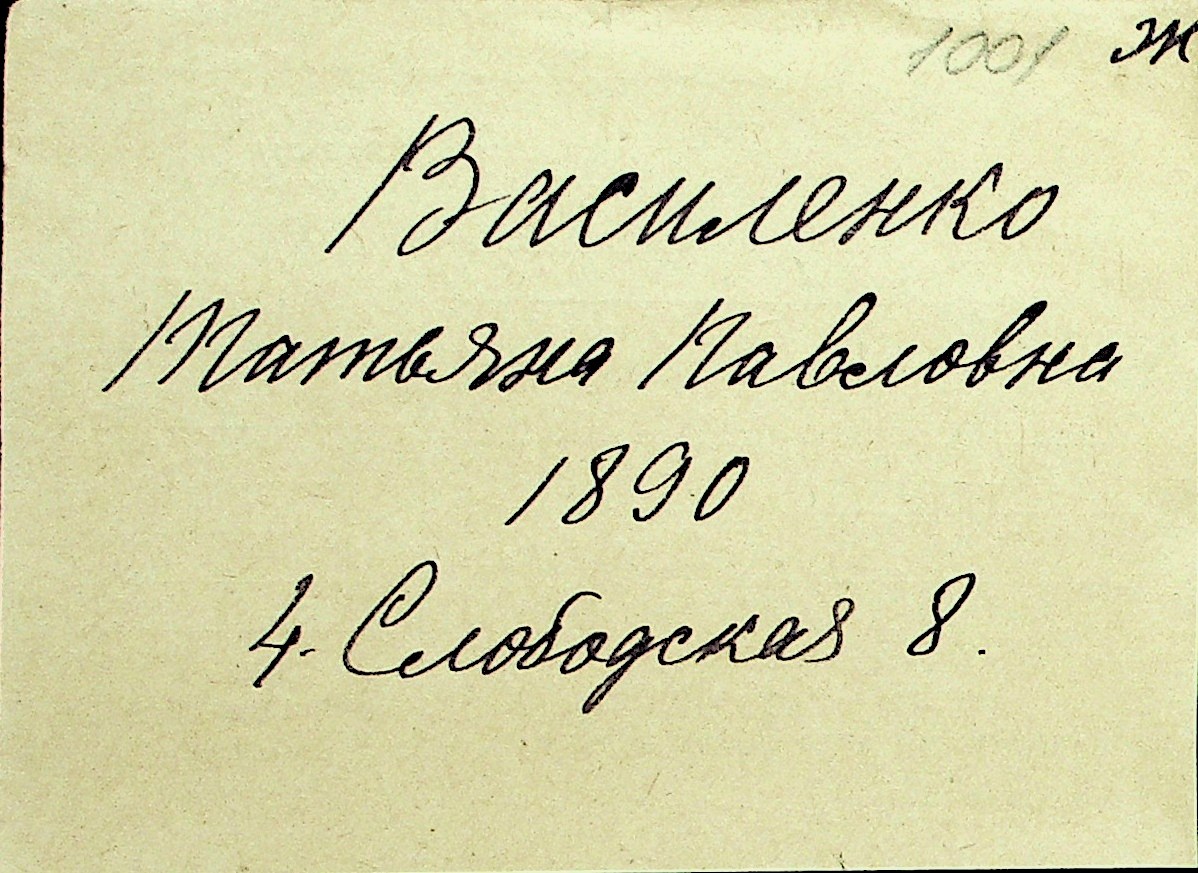 1001 Ж
Василенко
Татьяна Павловна
1890
4. Слободская 8.